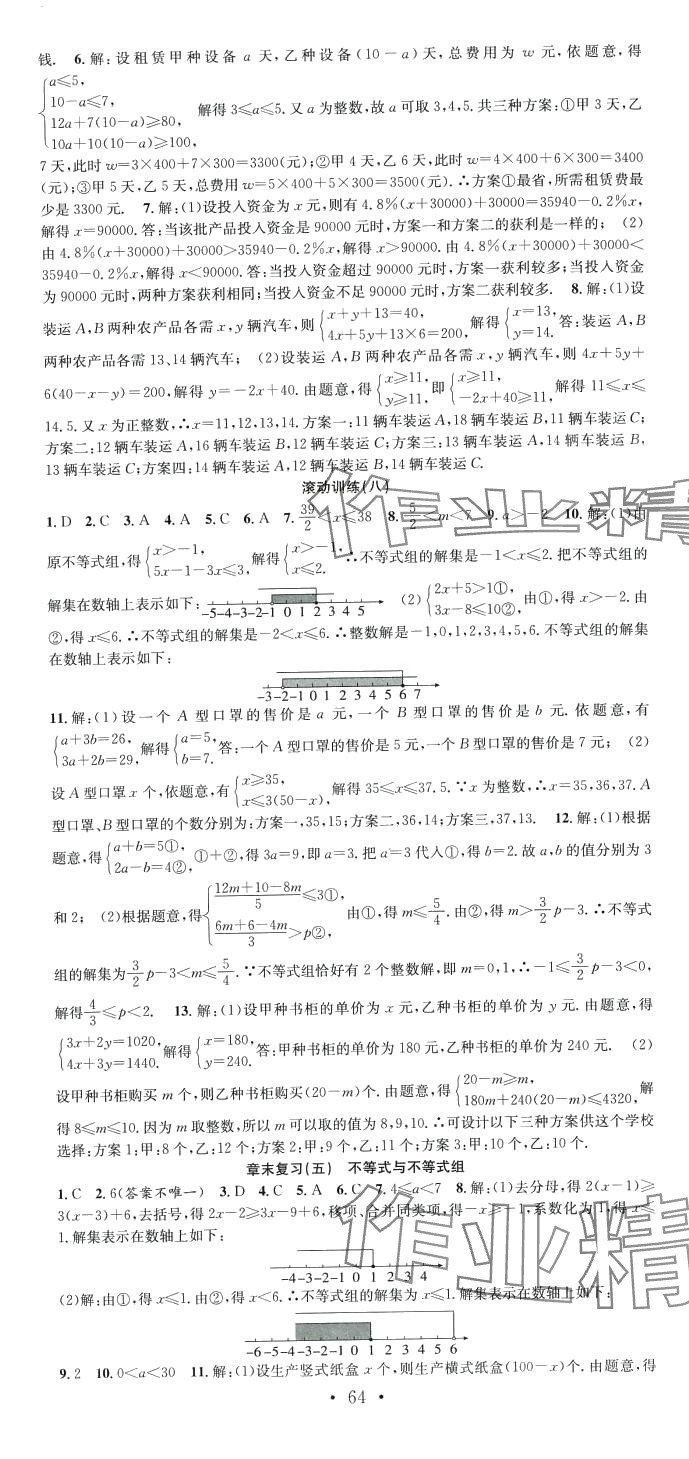 钱. 6.解:设租赁甲种设备 a 天,乙种设备(10-a)天,总费用为 w 元,依题意,得
{a≤5,
10-a≤7,
12a+7(10-a)≥80,
10a+10(10-a)≥100, 解得 3≤a≤5. 又 a 为整数,故 a 可取 3,4,5. 共三种方案:①甲 3 天,乙
7 天,此时 w=3×400+7×300=3300(元);②甲 4 天,乙 6 天,此时 w=4×400+6×300=3400
(元);③甲 5 天,乙 5 天,总费用 w=5×400+5×300=3500(元).∴方案①最省,所需租赁费最
少是 3300 元. 7.解:(1)设投入资金为 x 元,则有 4.8%(x+30000)+30000=35940-0.2%x,
解得 x=90000. 答:当该批产品投入资金是 90000 元时,方案一和方案二的获利是一样的; (2)
由 4.8%(x+30000)+30000>35940-0.2%x,解得 x>90000. 由 4.8%(x+30000)+30000<
35940-0.2%x,解得 x<90000. 答:当投入资金超过 90000 元时,方案一获利较多;当投入资金
为 90000 元时,两种方案获利相同;当投入资金不足 90000 元时,方案二获利较多. 8.解:(1)设
装运 A,B 两种农产品各需 x,y 辆汽车,则{x+y+13=40, 4x+5y+13×6=200, 解得{x=13, y=14. 答:装运 A,B
两种农产品各需 13、14 辆汽车; (2)设装运 A,B 两种农产品各需 x,y 辆汽车,则 4x+5y+
6(40-x-y)=200,解得 y=-2x+40. 由题意,得{x≥11, y≥11, 即{x≥11, -2x+40≥11, 解得 11≤x≤
14.5. 又 x 为正整数,∴x=11,12,13,14. 方案一:11 辆车装运 A,18 辆车装运 B,11 辆车装运 C;
方案二:12 辆车装运 A,16 辆车装运 B,12 辆车装运 C;方案三:13 辆车装运 A,14 辆车装运 B,
13 辆车装运 C;方案四:14 辆车装运 A,12 辆车装运 B,14 辆车装运 C.
滚动训练(八)
1.D 2.C 3.A 4.A 5.C 6.A 7.39/2<x≤38 8.5/2<m<7 9.a>-2 10.解:(1)由
原不等式组,得{x>-1, 5x-1-3x≤3, 解得{x>-1, x≤2. ∴不等式组的解集是-1<x≤2. 把不等式组的
解集在数轴上表示如下: -5-4-3-2-1 0 1 2 3 4 5 (2){2x+5>1①, 3x-8≤10②, 由①,得 x>-2. 由
②,得 x≤6.∴不等式组的解集是-2<x≤6.∴整数解是-1,0,1,2,3,4,5,6. 不等式组的解集
在数轴上表示如下:
-3-2-1 0 1 2 3 4 5 6 7
11.解:(1)设一个 A 型口罩的售价是 a 元,一个 B 型口罩的售价是 b 元. 依题意,有
{a+3b=26, 3a+2b=29, 解得{a=5, b=7. 答:一个 A 型口罩的售价是 5 元,一个 B 型口罩的售价是 7 元; (2)
设 A 型口罩 x 个,依题意,有{x≥35, x≤3(50-x), 解得 35≤x≤37.5.∵x 为整数,∴x=35,36,37. A
型口罩、B 型口罩的个数分别为:方案一,35,15;方案二,36,14;方案三,37,13. 12.解:(1)根据
题意,得{a+b=5①, 2a-b=4②, ①+②,得 3a=9,即 a=3. 把 a=3 代入①,得 b=2. 故 a,b 的值分别为 3
和 2; (2)根据题意,得{(12m+10-8m)/5≤3①, (6m+6-4m)/3>p②, 由①,得 m≤5/4. 由②,得 m>3/2p-3.∴不等式
组的解集为3/2p-3<m≤5/4.∵不等式组恰好有 2 个整数解,即 m=0,1,∴-1≤3/2p-3<0,
解得4/3≤p<2. 13.解:(1)设甲种书柜的单价为 x 元,乙种书柜的单价为 y 元. 由题意,得
{3x+2y=1020, 4x+3y=1440. 解得{x=180, y=240. 答:甲种书柜的单价为 180 元,乙种书柜的单价为 240 元. (2)
设甲种书柜购买 m 个,则乙种书柜购买(20-m)个. 由题意,得{20-m≥m, 180m+240(20-m)≤4320, 解
得 8≤m≤10. 因为 m 取整数,所以 m 可以取的值为 8,9,10.∴可设计以下三种方案供这个学校
选择:方案 1:甲:8 个,乙:12 个;方案 2:甲:9 个,乙:11 个;方案 3:甲:10 个,乙:10 个.
章末复习(五) 不等式与不等式组
1.C 2.6(答案不唯一) 3.D 4.C 5.A 6.C 7.4≤a<7 8.解:(1)去分母,得 2(x-1)≥
3(x-3)+6,去括号,得 2x-2≥3x-9+6,移项、合并同类项,得-x≥-1,系数化为 1,得 x≤
1. 解集表示在数轴上如下:
-4-3-2-1 0 1 2 3 4
(2)解:由①,得 x≤1. 由②,得 x<6.∴不等式组的解集为 x≤1. 解集表示在数轴上如下:
-6-5-4-3-2-1 0 1 2 3 4 5 6
9.2 10.0<a<30 11.解:(1)设生产竖式纸盒 x 个,则生产横式纸盒(100-x)个. 由题意,得
· 64 ·
作业精
作业精